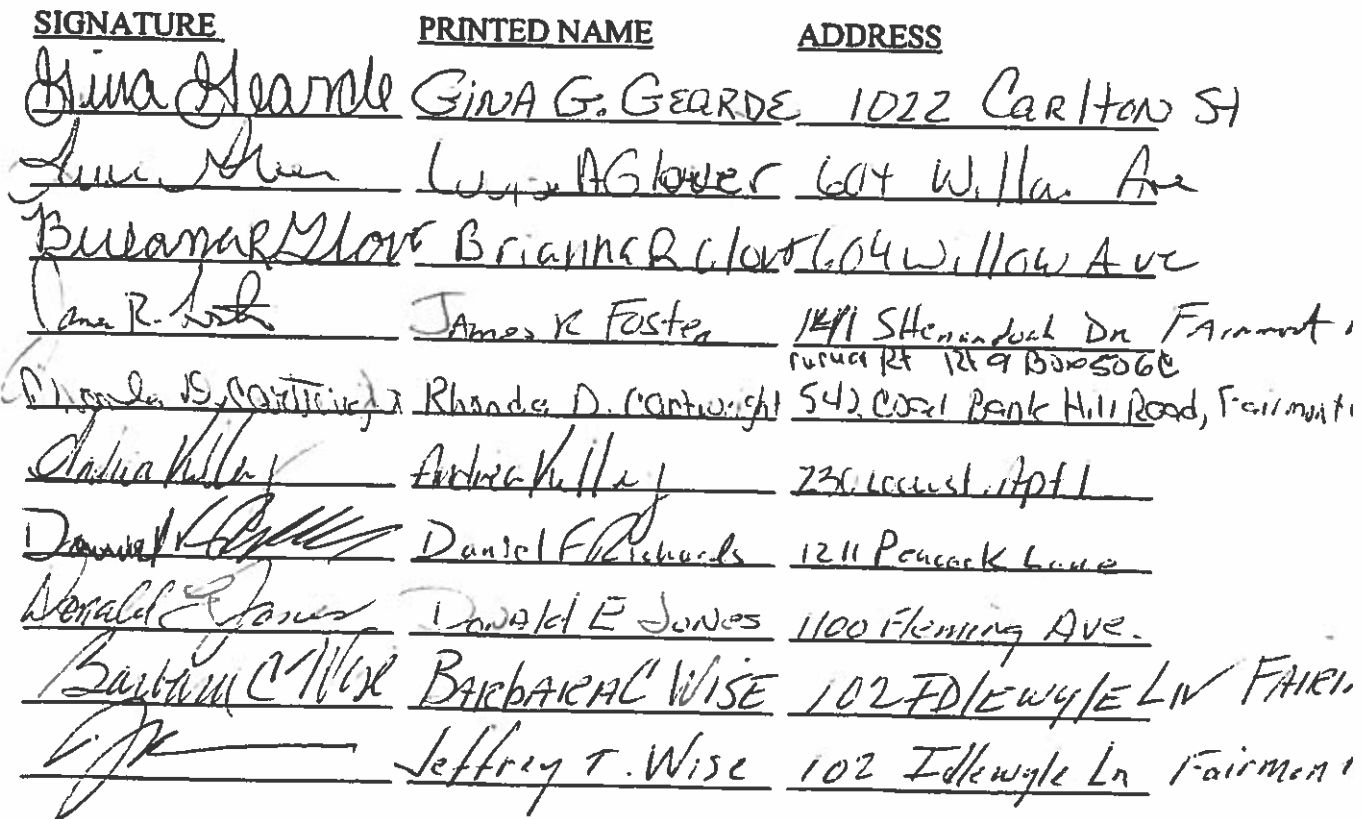 SIGNATURE PRINTED NAME ADDRESS
Gina Gearde GINA G. GEARDE 1022 CARlTON St
A Glover 604 Ave
Brianna R Glov Brianna R Glov 604 Willow Ave
James R. Foster JAmes R Foster SHenandoah DR FAirmont
Rt 9 Box 506C
Rhonda D. Cartwright Rhonda D. Cartwright 542 Coal Bank Hill Road, Fairmont
Andrea Kelley Andrea Kelley 230 Locust Apt 1
Daniel Daniel F Richards 1211 Peacock Lane
Donald E Jones DoNAld E JoNes 1100 Fleming Ave.
Barbara C Wise BARbARA C WISE 102 IDlEwylE LN FAIRM
Jeffrey T. Wise 102 Idlewyle Ln Fairmont